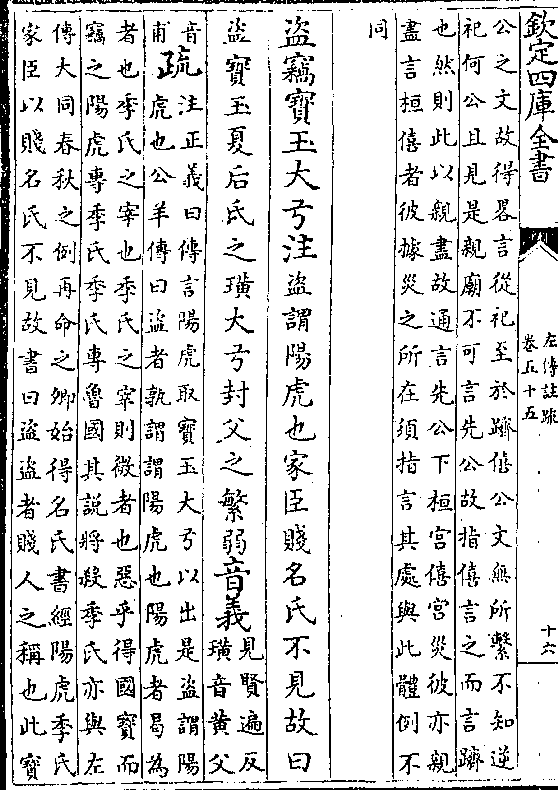 欽定四庫全書
左傳註疏
卷五十五
十六
公之文故得畧言從祀至於躋僖公文無所繫不知逆
祀何公且見是親廟不可言先公故指僖言之而言躋
也然則此以親盡故通言先公下桓宫僖宫災彼亦親
盡言桓僖者彼據災之所在須指言其處與此體例不
同
盜竊寶玉大弓注盜謂陽虎也家臣賤名氏不見故曰
盜寶玉夏后氏之璜大弓封父之繁弱音義見賢遍反
璜音黄父
音
甫
疏注正義曰傳言陽虎取寶玉大弓以出是盜謂陽
虎也公羊傳曰盜者孰謂謂陽虎也陽虎者曷為
者也季氏之宰也季氏之宰則微者也惡乎得國寶而
竊之陽虎專季氏季氏專魯國其說將殺季氏亦與左
傳大同春秋之例再命之卿始得名氏書經陽虎季氏
家臣以賤名氏不見故書曰盜盜者賤人之稱也此寶